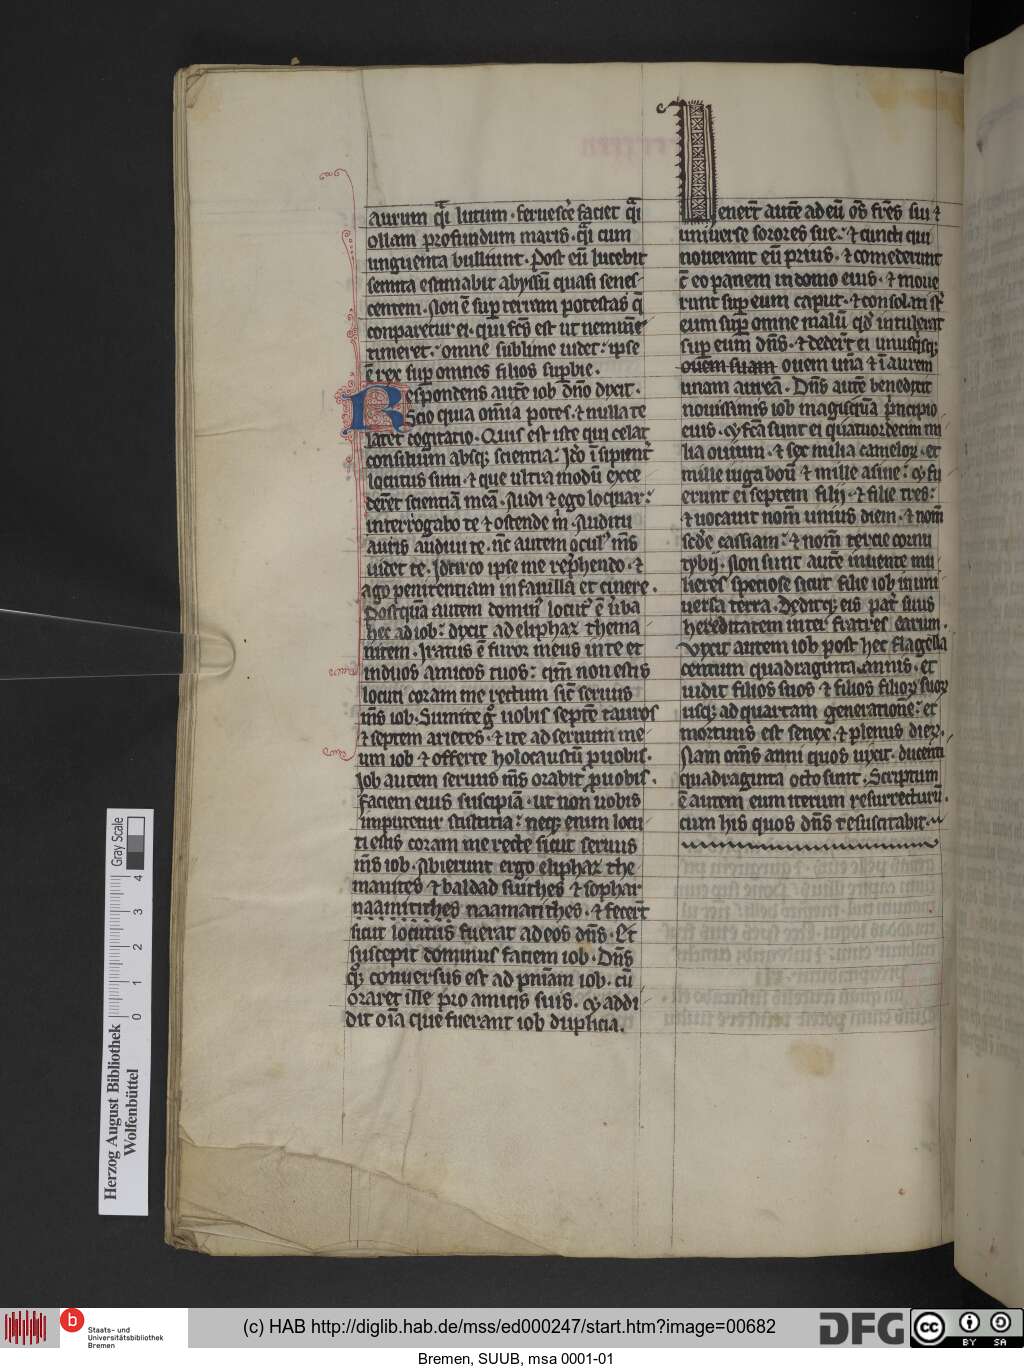 aurum q̄i lutum · feruesc̄e faciet q̄i
ollam profundum maris · q̄i cum
unguenta bulliunt · Post eū lucebit
semita estimabit abyssū quasi senes-
centem · Non ē sup terram potestas q̄
conparetur ei · qui fc̄s est ut neminē
timeret · omne sublime uidet : ipse
ē rex sup omnes filios supbie ·
Respondens autē iob dn̄o dixit ·
Scio quia om̄ia potes · ⁊ nulla te
latet cogitatio · Quis est iste qui celat
consilium absq; scientia : Idº īsipient
locutus sum · ⁊ que ultra modū exce
derēt scientiā meā · Audi ⁊ ego loquar :
interrogabo te ⁊ ostende m · Auditu
auris audiui te · n̄c autem ocul' m̄s
uidet te · Idcirco ipse me rephendo · ⁊
ago penitentiam in fauilla et cinere ·
Postquā autem domin' locut' ē ūba
hec ad iob : dixit ad eliphaz thema
nitem · Iratus ē furor meus in te et
in duos amicos tuos : qm̄ non estis
locuti coram me rectum sic̄ seruus
m̄s iob · Sumite g° uobis septē tauros
⁊ septem arietes · ⁊ ite ad seruum me
um iob ⁊ offerte holocaustū p uobis ·
Iob autem seruus m̄s orabit p uobis ·
faciem eius suscipiā · ut non uobis
imputetur stultitia : neq; enim locu
ti estis coram me recte sicut seruus
m̄s iob · Abierunt ergo eliphaz the
manites ⁊ baldad suithes ⁊ sophar
naamitithes naamatithes · ⁊ fecert̄
sicut locutus fuerat ad eos dn̄s · Et
suscepit dominus faciem iob · Dn̄s
q; conuersus est ad pniam iob · cū
oraret ille pro amicis suis · ⁊ addi
dit oīa que fuerant iob duplicia ·
Uenert̄ autē ad eū oēs fr̄es sui ⁊
uniuerse sorores sue · ⁊ cuncti qui
nouerant eū prius · ⁊ comederunt
c̄ eo panem in domo eius · ⁊ moue
runt sup eum caput · ⁊ consolati sr̄
eum sup omne malū qd' intulerat
sup eum dn̄s · ⁊ dedert̄ ei unusqsq;
ouem suam ouem unā ⁊ īaurem
unam aureā · Dn̄s autē benedixit
nouissimis iob magis quā principio
eius · ⁊ fc̄a sunt ei quatuordecim mi
lia ouium · ⁊ sex milia camelorz · et
mille iuga boū ⁊ mille asine : ⁊ fu
erunt ei septem filij · ⁊ filie tres :
⁊ uocauit nom̄ unius diem · ⁊ nom̄
scd̄e cassiam : ⁊ nom̄ tercie cornu
tybij · Non sunt autē inuente mu
lieres speciose sicut filie iob in uni
uersa terra · Deditq; eis pat̄ suus
hereditatem inter fratres earum ·
Uixit autem iob post hec flagella
centum quadraginta annis · et
uidit filios suos ⁊ filios filiorz suorz
usq; ad quartam generationē : et
mortuus est senex · ⁊ plenus dierz ·
Nam om̄s anni quos uixit · ducenti
quadraginta octo sunt · Scriptum
ē autem eum iterum resurrecturū ·
cum his quos dn̄s resuscitabit ·
Gray Scale
0 1 2 3 4
Herzog August Bibliothek
Wolfenbüttel
b
Staats- und
Universitätsbibliothek
Bremen
(c) HAB http://diglib.hab.de/mss/ed000247/start.htm?image=00682
DFG
cc BY SA
Bremen, SUUB, msa 0001-01